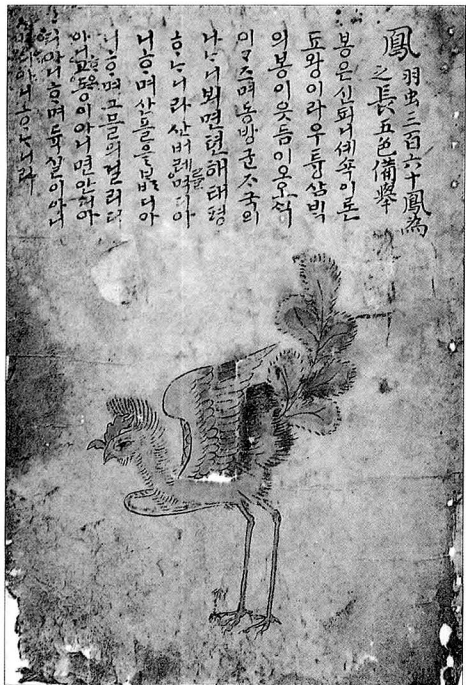 鳳 羽虫三百六十鳳爲
之長五色備擧
봉은신됴니셰쇽이론
됴왕이라우튱삼빅
의봉이웃듬이오오식
이ᄀᆞᄌᆞ며동방군ᄌᆞ국의
나ᄂᆞ니뵈면텬해태평
ᄒᆞᄂᆞ니라산버레를먹디아
니ᄒᆞ며산플을ᄇᆞᆲ디아
니ᄒᆞ며그믈의걸리디
아니 오동이아니면안디아
니ᄒᆞ며듁실이아니
디아니ᄒᆞᄂᆞ니라